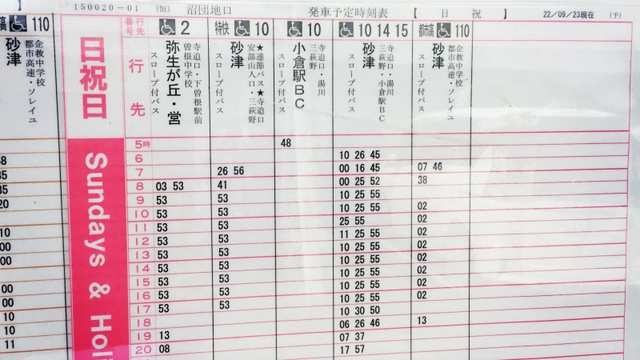 150020-01 沼団地口 発車予定時刻表 【 日 祝 】 22/09/23現在 (予)
110
砂津
金教中学校
都市高速・ソレイユ
日祝日
Sundays & Hol
番号 行先
行先
2
弥生が丘・営
寺迫口・下曽根駅前
曽根中学校
スロープ付バス
特快 10
砂津
★連節バス★寺迫口
安部山入口・三萩野
スロープ付バス
10
小倉駅BC
寺迫口・湯川
三萩野
スロープ付バス
10 14 15
砂津
寺迫口・湯川
三萩野・小倉駅BC
スロープ付バス
都市高 110
砂津
金教中学校
都市高速・ソレイユ
スロープ付バス
5時 48
6 10 26 45
7 26 56 00 16 45 07 46
8 03 53 41 00 25 52 38
9 53 53 10 25 55
10 53 53 10 25 55 02
11 53 53 25 55
12 53 53 11 25 55 02
13 53 53 10 25 55 02
14 53 53 10 25 55 02
15 53 53 10 25 55 02
16 53 53 10 25 55 02
17 53 53 10 25 55 02
18 10 30 50
19 13 06 26 46 13
20 08 07 37
17 57